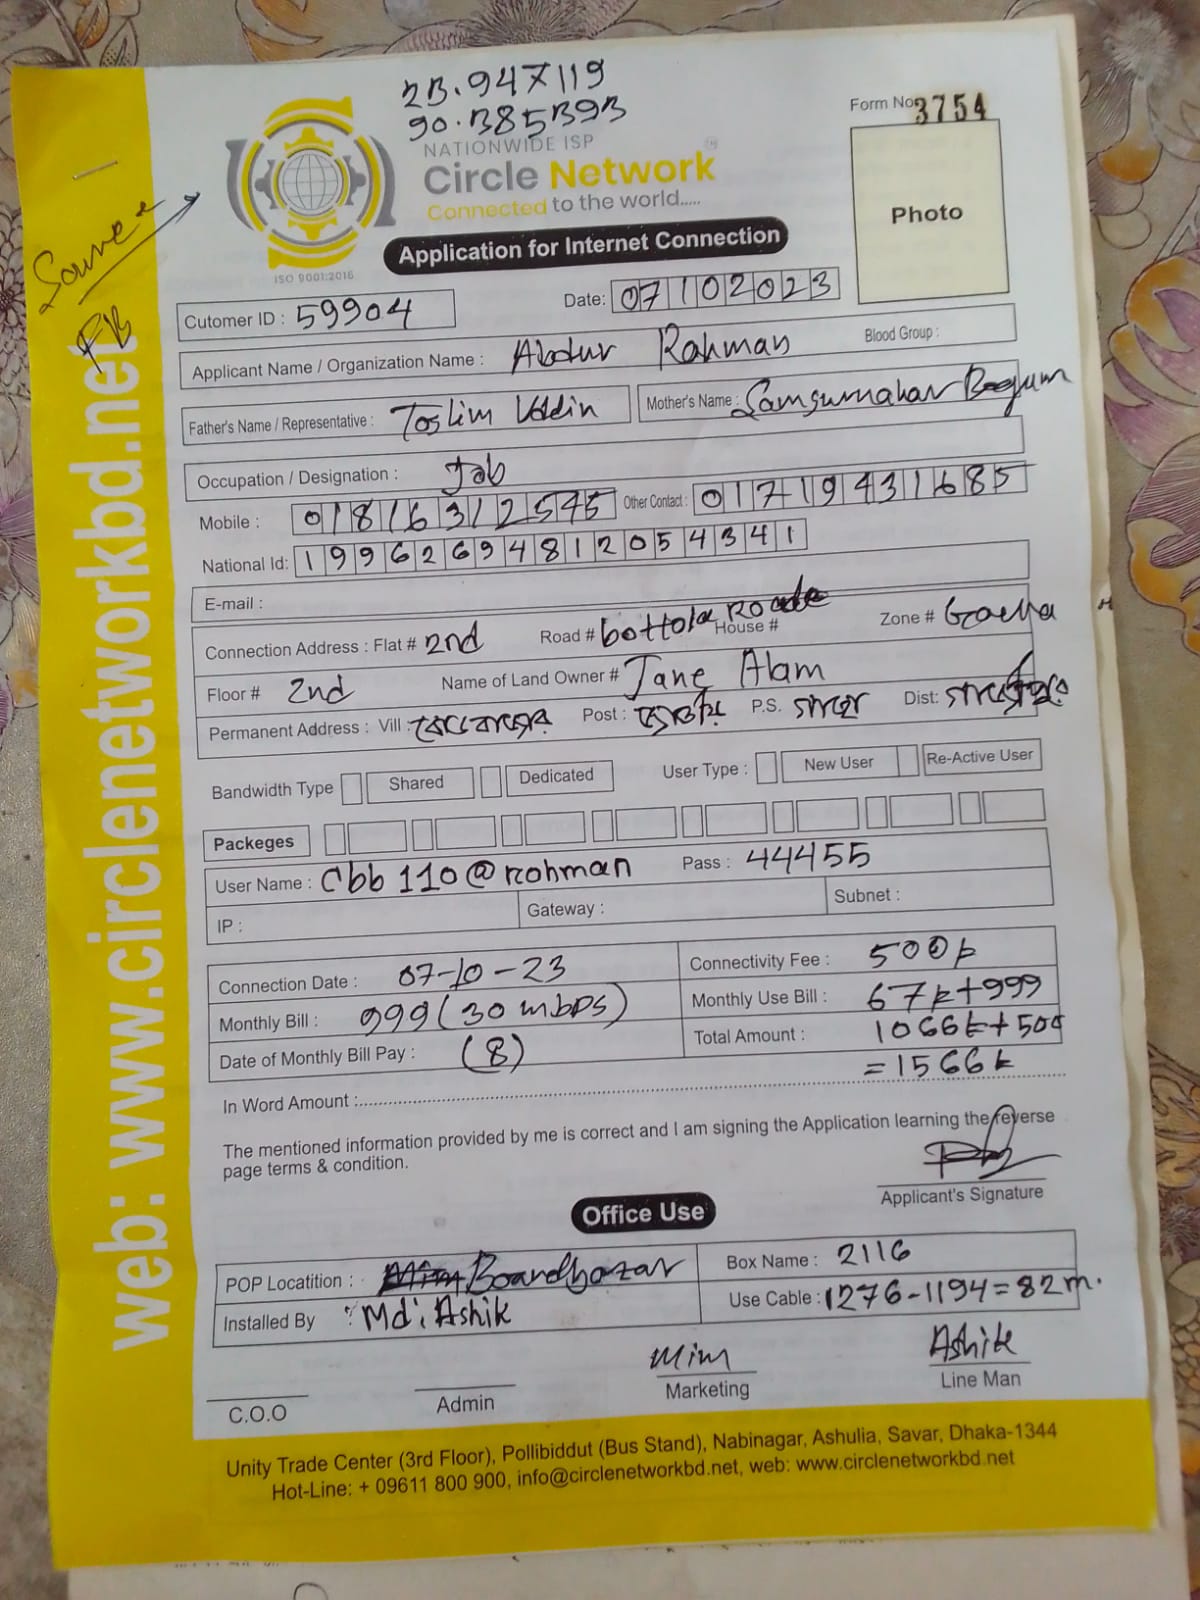 23.947119
90.385393
NATIONWIDE ISP
Circle Network
Connected to the world.....
ISO 9001:2016
Form No 3754
Photo
Source
FB
web: www.circlenetworkbd.net
Application for Internet Connection
Cutomer ID : 59904 Date: 07102023
Applicant Name / Organization Name : Abdur Rahman Blood Group :
Father's Name / Representative : Toslim Uddin Mother's Name : Samsurnahar Begum
Occupation / Designation : Job
Mobile : 01816312545 Other Contact : 01719431685
National Id: 19962694812054341
E-mail :
Connection Address : Flat # 2nd Road # bottola Roade House # Zone #
Floor # 2nd Name of Land Owner # Jane Alam
Permanent Address : Vill : Post : P.S. Dist:
Bandwidth Type Shared Dedicated User Type : New User Re-Active User
Packeges
User Name : cbb110@rohman Pass : 44455
IP : Gateway : Subnet :
Connection Date : 07-10-23 Connectivity Fee : 500
Monthly Bill : 999 (30 mbps) Monthly Use Bill : 67 + 999
Date of Monthly Bill Pay : (8) Total Amount : 1066 + 500
= 1566
In Word Amount :
The mentioned information provided by me is correct and I am signing the Application learning the reverse
page terms & condition.
Applicant's Signature
Office Use
POP Locatition : Boardbazar Box Name : 2116
Installed By : Md: Ashik Use Cable : 1276-1194=82m.
Mim Ashik
C.O.O Admin Marketing Line Man
Unity Trade Center (3rd Floor), Pollibiddut (Bus Stand), Nabinagar, Ashulia, Savar, Dhaka-1344
Hot-Line: + 09611 800 900, info@circlenetworkbd.net, web: www.circlenetworkbd.net